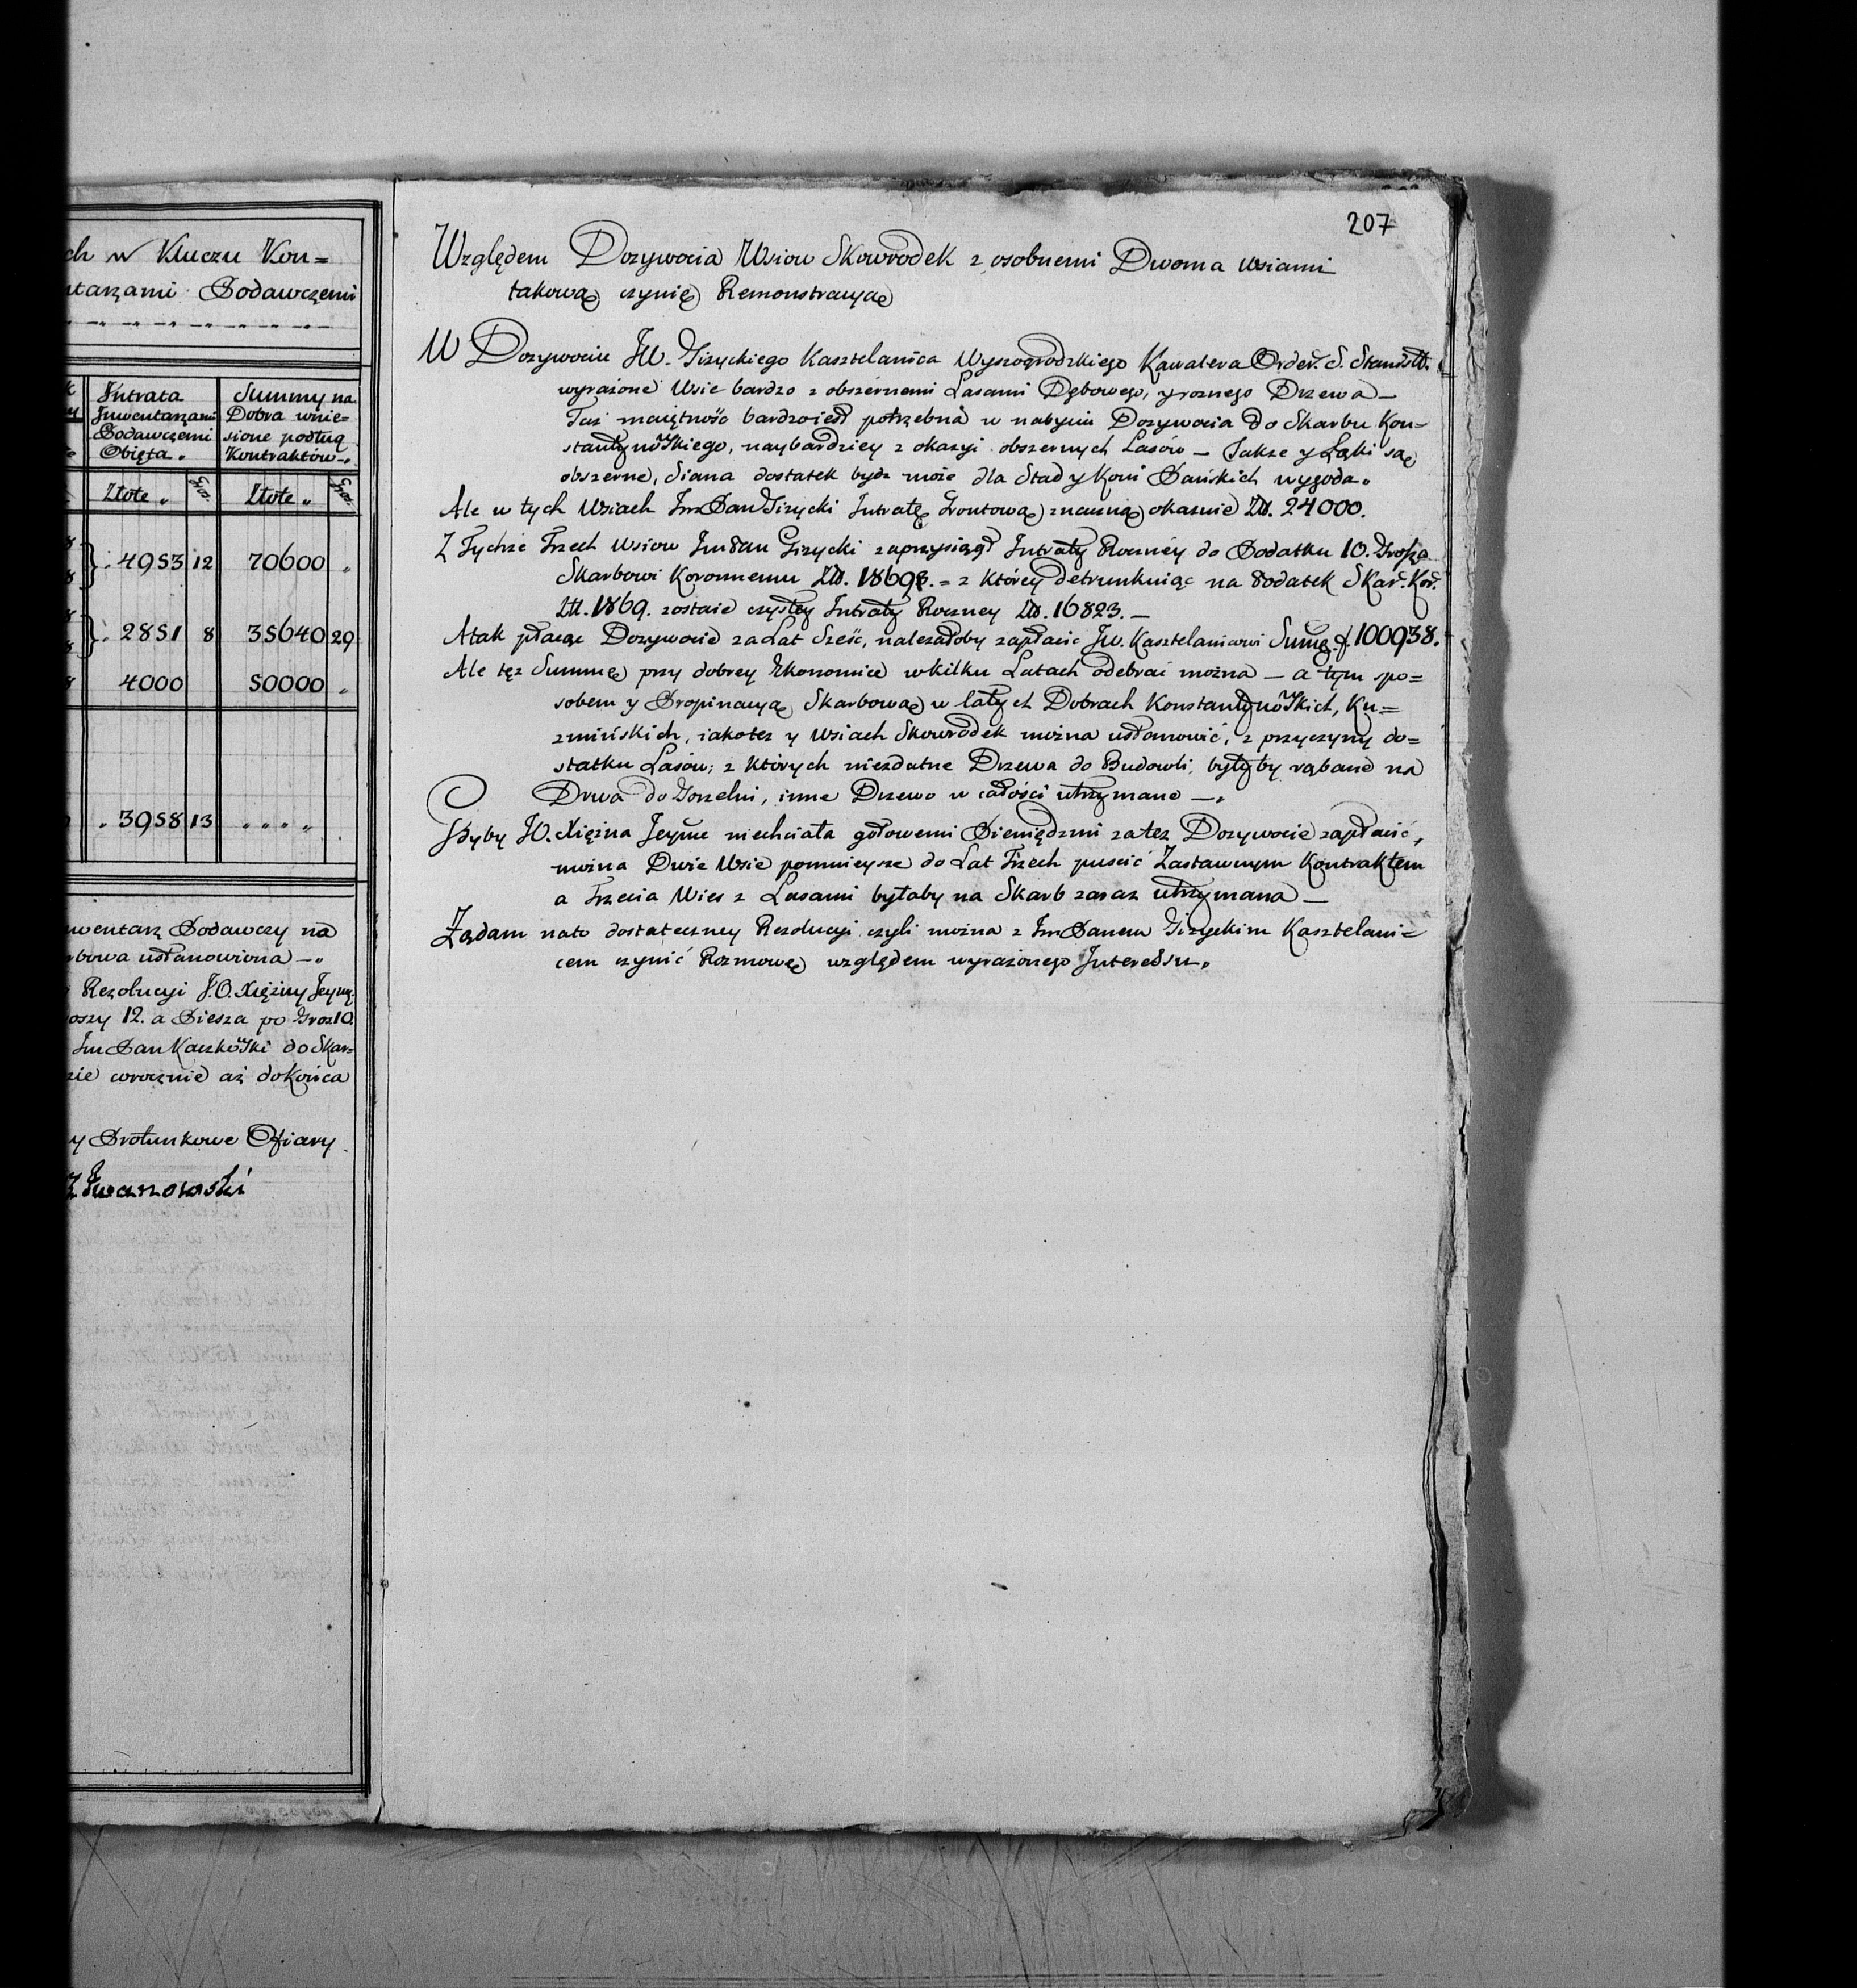 ch w Kluczu Kon=
ntarzami Podawczemi
Intrata
Inwentarzami
Podawczemi
Obięta.
Summy na
Dobra wnie=
sione podług
Kontraktów
Złote „ Gro. Złote „ Gro.
4953 12 70600 „
2851 8 35640 29
4000 50000 „
3958 13 „ „ „ „
nwentarz Podawczy na
rbowa ustanowiona
Rezolucyi J.O. Xiężny Jeymę.
oszy 12. a Piesza po Grosz 10.
Im Pan Kaczkowski do Skar=
zie corocznie aż do Końca
y Protunkowe Ofiary
Iwanowski
207
Względem Dozywocia Wsiow Skowrodek z osobnemi Dwoma wsiami
takową czynię Remonstracyą
W Dozywociu JW. Gizyckiego Kasztelanica Wyszogrodzkiego Kawalera Order. S. Stanisła.
wyrażone Wsie bardzo z obszernemi Lasami Dębowego, y roznego Drzewa —
Taż maiętność bardzo iest potrzebna w nabyciu Dozywocia do Skarbu Kon=
stantynowskiego, naybardziey z okazyi obszernych Lasów — Takze y Łąki są
obszerne, Siana dostatek bydz może dla Stad y Koni Pańskich wygoda.
Ale w tych Wsiach Im Pan Gizycki Intratę Grontową znaczną okazuie Zł. 24000.
Z Tychże Trzech Wsiow Im Pan Gizycki zaprzysiągł Intraty Roczney do Podatku 10. Grosza
Skarbowi Koronnemu Zł. 18693. = z którey detrunkuiąc na Podatek Skar. Kor.
Zł. 1869. zostaie czystey Intraty Roczney Zł. 16823. —
A tak płacąc Dozywocie za Lat Sześć, nalezałoby zapłacić JW. Kasztelanicowi Sumę f. 100938.
Ale tęż Summę przy dobrey Ekonomice w kilku Latach odebrać można — a tym spo=
sobem y Propinacyą Skarbową w całych Dobrach Konstantynowskich, Ku=
zmińskich, iakotez y Wsiach Skowrodek można ustanowić, z przyczyny do=
statku Lasów; z których niezdatne Drzewa do Budowli, byłyby rąbane na
Drwa do Gorzelni, inne Drzewo w całości utrzymane —
Gdyby JO. Xiężna Jeymć niechciała gotowemi Pieniędzmi za też Dozywocie zapłacić,
można Dwie Wsie pomnieysze do Lat Trzech puscić Zastawnym Kontraktem
a Trzecia Wies z Lasami byłaby na Skarb zaraz utrzymana —
Żądam na to dostateczney Rezolucyi czyli można z Im Panem Gizyckim Kasztelani=
cem czynić Rozmowę względem wyrażonego Interessu.